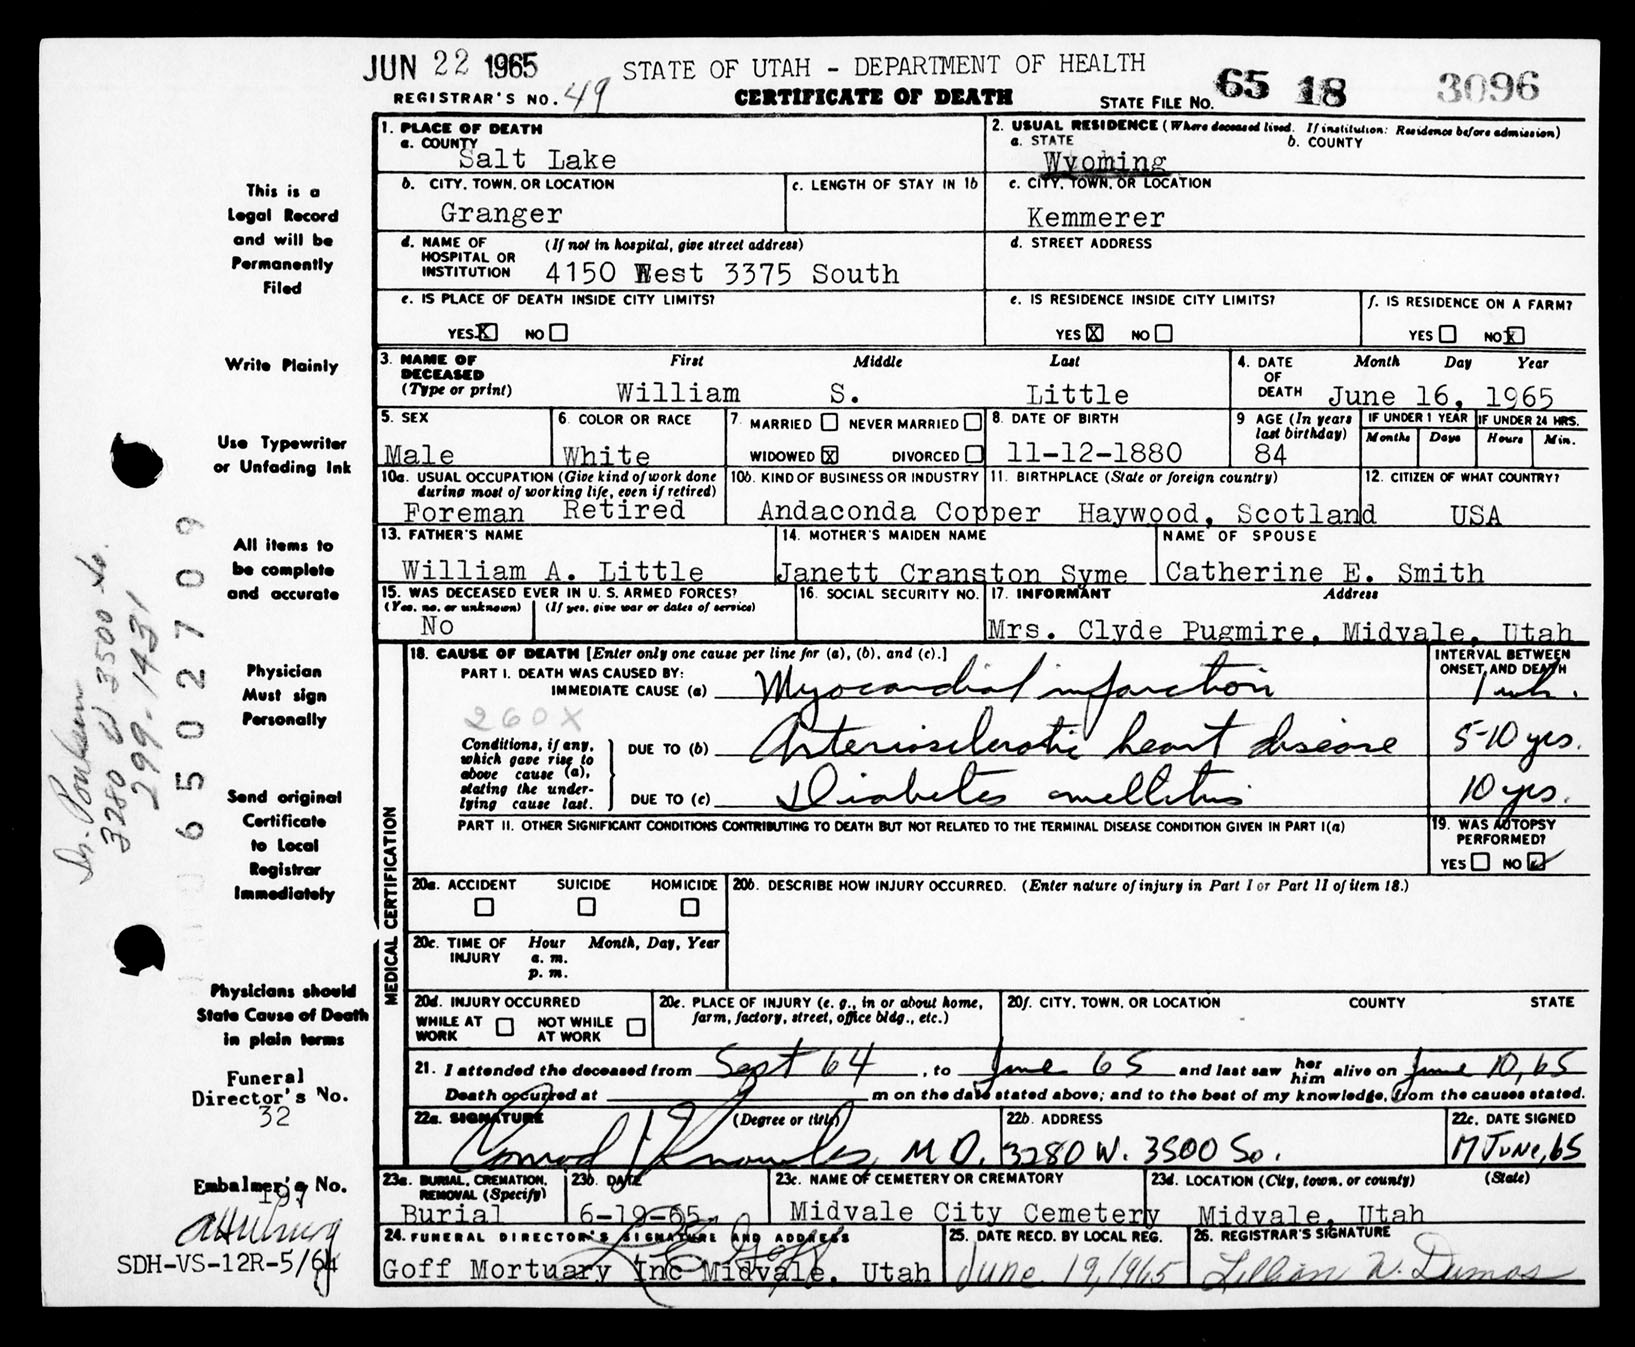 JUN 22 1965 STATE OF UTAH - DEPARTMENT OF HEALTH
REGISTRAR'S NO. 49 CERTIFICATE OF DEATH STATE FILE NO. 65 18 3096
1. PLACE OF DEATH
a. COUNTY
Salt Lake
2. USUAL RESIDENCE (Where deceased lived. If institution: Residence before admission)
a. STATE b. COUNTY
Wyoming
b. CITY, TOWN, OR LOCATION c. LENGTH OF STAY IN 1b
Granger
c. CITY, TOWN, OR LOCATION
Kemmerer
d. NAME OF (If not in hospital, give street address)
HOSPITAL OR
INSTITUTION 4150 West 3375 South
d. STREET ADDRESS
e. IS PLACE OF DEATH INSIDE CITY LIMITS?
YES X NO
e. IS RESIDENCE INSIDE CITY LIMITS?
YES X NO
f. IS RESIDENCE ON A FARM?
YES NO X
3. NAME OF First Middle Last
DECEASED
(Type or print) William S. Little
4. DATE Month Day Year
OF
DEATH June 16, 1965
5. SEX
Male
6. COLOR OR RACE
White
7. MARRIED NEVER MARRIED
WIDOWED X DIVORCED
8. DATE OF BIRTH
11-12-1880
9 AGE (In years
last birthday)
84
IF UNDER 1 YEAR IF UNDER 24 HRS.
Months Days Hours Min.
10a. USUAL OCCUPATION (Give kind of work done
during most of working life, even if retired)
Foreman Retired
10b. KIND OF BUSINESS OR INDUSTRY
Andaconda Copper
11. BIRTHPLACE (State or foreign country)
Haywood, Scotland
12. CITIZEN OF WHAT COUNTRY?
USA
13. FATHER'S NAME
William A. Little
14. MOTHER'S MAIDEN NAME
Janett Cranston Syme
NAME OF SPOUSE
Catherine E. Smith
15. WAS DECEASED EVER IN U. S. ARMED FORCES?
(Yes, no, or unknown) (If yes, give war or dates of service)
No
16. SOCIAL SECURITY NO.
17. INFORMANT Address
Mrs. Clyde Pugmire, Midvale, Utah
MEDICAL CERTIFICATION
18. CAUSE OF DEATH [Enter only one cause per line for (a), (b), and (c).]
INTERVAL BETWEEN
ONSET, AND DEATH
PART I. DEATH WAS CAUSED BY:
IMMEDIATE CAUSE (a) Myocardial infarction 1 wk.
260X
Conditions, if any,
which gave rise to
above cause (a),
stating the under-
lying cause last.
DUE TO (b) Arteriosclerotic heart disease 5-10 yrs.
DUE TO (c) Diabetes mellitus 10 yrs.
PART II. OTHER SIGNIFICANT CONDITIONS CONTRIBUTING TO DEATH BUT NOT RELATED TO THE TERMINAL DISEASE CONDITION GIVEN IN PART I(a)
19. WAS AUTOPSY
PERFORMED?
YES NO ✓
20a. ACCIDENT SUICIDE HOMICIDE
20b. DESCRIBE HOW INJURY OCCURRED. (Enter nature of injury in Part I or Part II of item 18.)
20c. TIME OF Hour Month, Day, Year
INJURY a. m.
p. m.
20d. INJURY OCCURRED
WHILE AT NOT WHILE
WORK AT WORK
20e. PLACE OF INJURY (e. g., in or about home,
farm, factory, street, office bldg., etc.)
20f. CITY, TOWN, OR LOCATION COUNTY STATE
21. I attended the deceased from Sept 64, to June 65 and last saw her him alive on June 10, 65
Death occurred at m on the date stated above; and to the best of my knowledge, from the causes stated.
22a. SIGNATURE (Degree or title)
Conrad Knowles, M D.
22b. ADDRESS
3280 W. 3500 So.
22c. DATE SIGNED
17 June, 65
23a. BURIAL, CREMATION,
REMOVAL (Specify)
Burial
23b. DATE
6-19-65
23c. NAME OF CEMETERY OR CREMATORY
Midvale City Cemetery
23d. LOCATION (City, town, or county) (State)
Midvale, Utah
24. FUNERAL DIRECTOR'S SIGNATURE AND ADDRESS
Goff Mortuary Inc Midvale, Utah
25. DATE RECD. BY LOCAL REG.
June 19, 1965
26. REGISTRAR'S SIGNATURE
Lillian W. Dumas
This is a
Legal Record
and will be
Permanently
Filed
Write Plainly
Use Typewriter
or Unfading Ink
All items to
be complete
and accurate
Physician
Must sign
Personally
Send original
Certificate
to Local
Registrar
Immediately
Physicians should
State Cause of Death
in plain terms
Funeral
Director's No.
32
Embalmer's No.
197
SDH-VS-12R-5/64
Dr. Poulsen
3280 W 3500 So.
299-1431
06502709